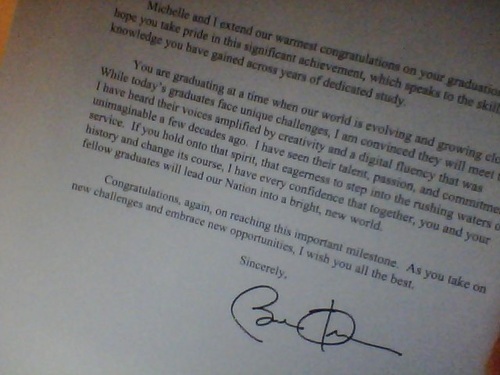 Michelle and I extend our warmest congratulations on your graduation
hope you take pride in this significant achievement, which speaks to the
knowledge you have gained across years of dedicated study.
You are graduating at a time when our world is evolving and growing
While today's graduates face unique challenges, I am convinced they will meet
I have heard their voices amplified by creativity and a digital fluency that was
unimaginable a few decades ago. I have seen their talent, passion, and
service. If you hold onto that spirit, that eagerness to step into the rushing waters
history and change its course, I have every confidence that together, you and your
fellow graduates will lead our Nation into a bright, new world.
Congratulations, again, on reaching this important milestone. As you take on
new challenges and embrace new opportunities, I wish you all the best.
Sincerely,